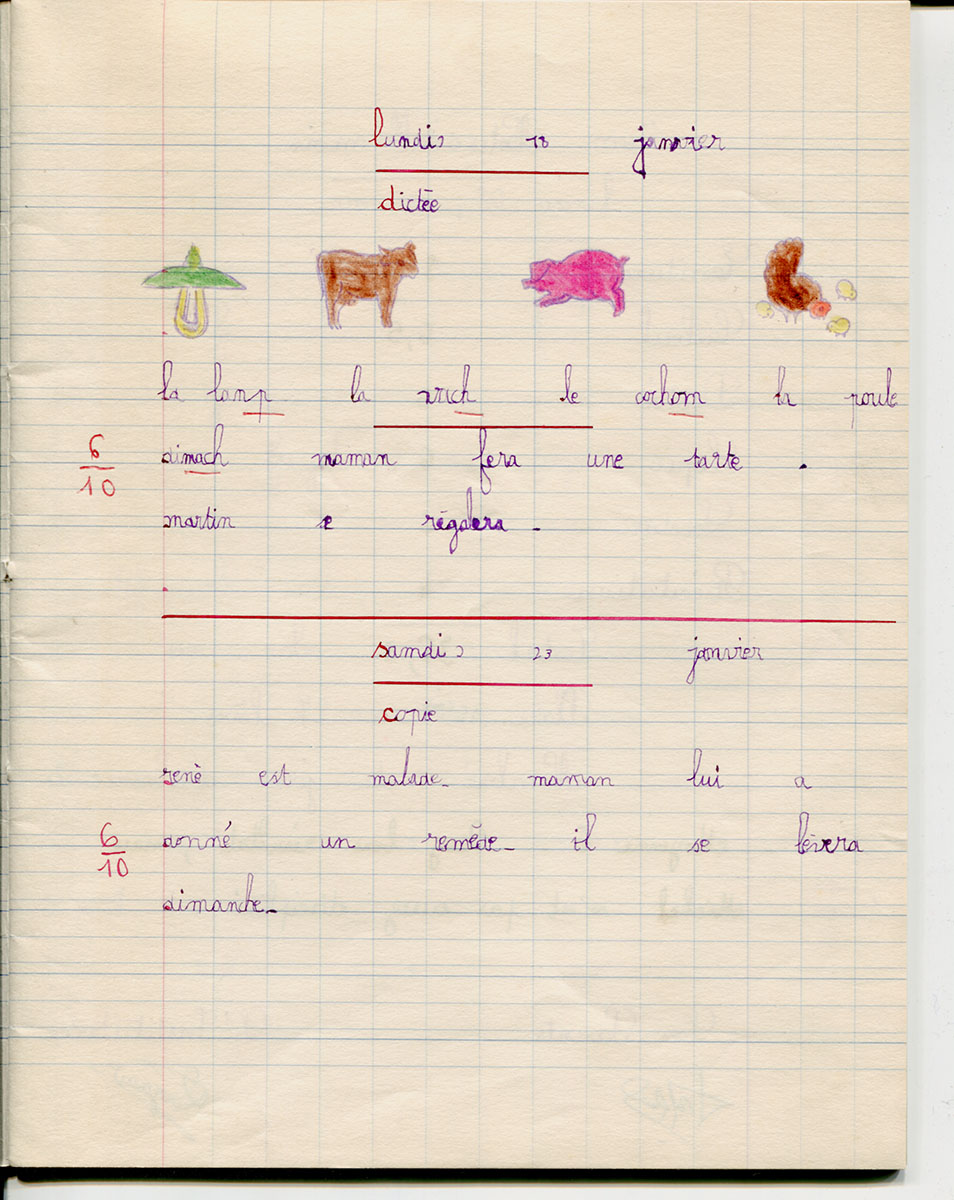 lundi 18 janvier
dictée
la lanp la vach le cochom la poule
6/10
dimach maman fera une tarte .
martin se régalera .
samdi 23 janvier
copie
renè est malade. maman lui a
6/10
donné un remède. il se lèvera
dimanche.